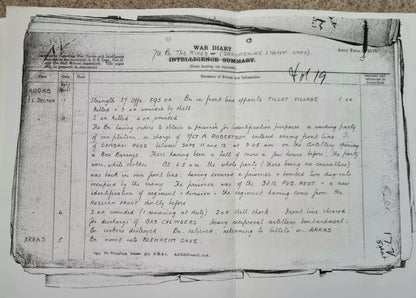 7th B. The KINGS (SHROPSHIRE LIGHT INFY).
WAR DIARY
INTELLIGENCE SUMMARY.
(Erase heading not required.)
Army Form
Vol 19
Summary of Events and Information
ARRAS
I Sector
Strength 37 Offs 895 OR Bn in front line opposite TILLOY VILLAGE 1 OR
killed + 3 OR wounded by shell
2 OR killed 4 OR wounded
The Bn having orders to obtain a prisoner for identification purposes a raiding party
of one platoon, in charge of 2/LT A. ROBERTSON entered enemy front line S.
of CAMBRAI ROAD between SAPS 11 and 12 at 3.45 am on the Artillery opening
a Box Barrage. There having been a fall of snow a few hours before, the party
wore white clothes. At 3.55 am the whole party (there being no casualties)
was back in our front line, having secured a prisoner + bombed two dug-outs
occupied by the enemy. The prisoner was of the 35th FUS REGT - a new
identification of regiment + division - the regiment having come from the
RUSSIAN FRONT shortly before
4 2 OR wounded (1 remaining at duty) 2 OR shell shock Front line cleared
for discharge of GAS CYLINDERS. Heavy reciprocal artillery bombardment.
Bn relieved, returning to billets in ARRAS
ARRAS 5 Bn moved into BLENHEIM CAVE.